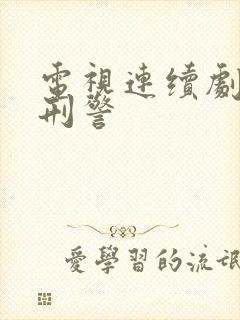 電視連續劇
刑警
愛學習的流氓